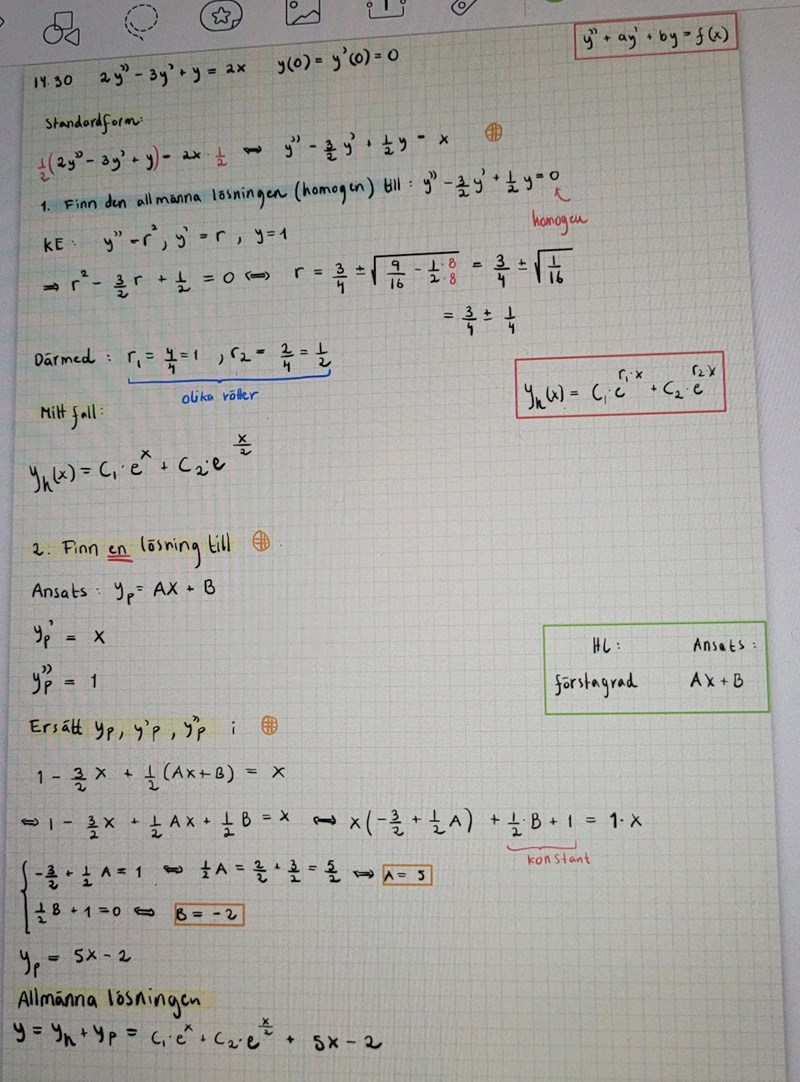 y'' + ay' + by = f(x)
14.30 2y'' - 3y' + y = 2x y(0) = y'(0) = 0
Standardform:
1/2(2y'' - 3y' + y) = 2x · 1/2 ⇔ y'' - 3/2 y' + 1/2 y = x ⊕
1. Finn den allmänna lösningen (homogen) till : y'' - 3/2 y' + 1/2 y = 0
homogen
KE: y'' = r², y' = r, y = 1
⇒ r² - 3/2 r + 1/2 = 0 ⇔ r = 3/4 ± √(9/16 - 1/2 ·8/·8) = 3/4 ± √(1/16)
= 3/4 ± 1/4
Därmed : r₁ = 4/4 = 1 , r₂ = 2/4 = 1/2
olika rötter
yₕ(x) = C₁·e^(r₁·x) + C₂·e^(r₂·x)
Mitt fall:
yₕ(x) = C₁·e^x + C₂·e^(x/2)
2. Finn en lösning till ⊕
Ansats : yₚ = Ax + B
yₚ' = x
yₚ'' = 1
HL : Ansats :
förstagrad Ax + B
Ersätt yₚ, y'ₚ, y''ₚ i ⊕
1 - 3/2 x + 1/2 (Ax + B) = x
⇔ 1 - 3/2 x + 1/2 Ax + 1/2 B = x ⇔ x(-3/2 + 1/2 A) + 1/2 · B + 1 = 1·x
konstant
{ -3/2 + 1/2 A = 1 ⇔ 1/2 A = 2/2 + 3/2 = 5/2 ⇔ A = 5
1/2 B + 1 = 0 ⇔ B = -2
yₚ = 5x - 2
Allmänna lösningen
y = yₕ + yₚ = C₁·e^x + C₂·e^(x/2) + 5x - 2